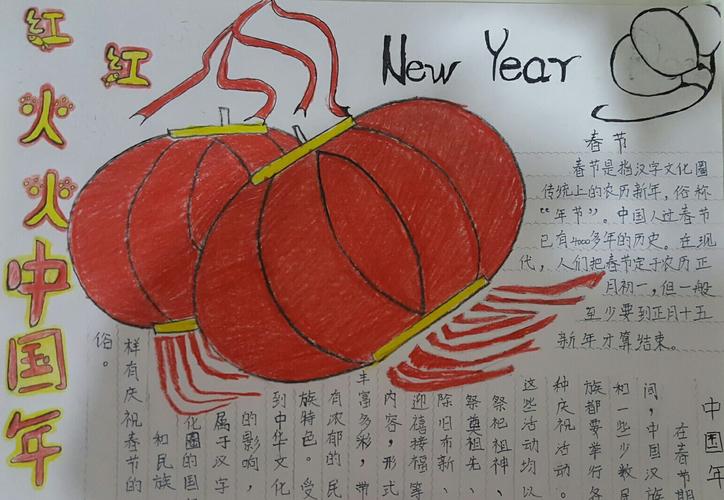 红红火火中国年
New Year
春节
春节是指汉字文化圈
传统上的农历新年，俗称
“年节”。中国人过春节
已有4000多年的历史。在现
代，人们把春节定于农历正
月初一，但一般
至少要到正月十五
新年才算结束。
中国年
在春节期
间，中国汉族
和一些少数民
族都要举行各
种庆祝活动
这些活动均以
祭祀祖神、
祭奠祖先、
除旧布新、
迎禧接福等
内容，形式
丰富多彩，带
有浓郁的民
族特色。受
到中华文化
的影响，
属于汉字
化圈的国
和民族
样有庆祝春节的
俗。